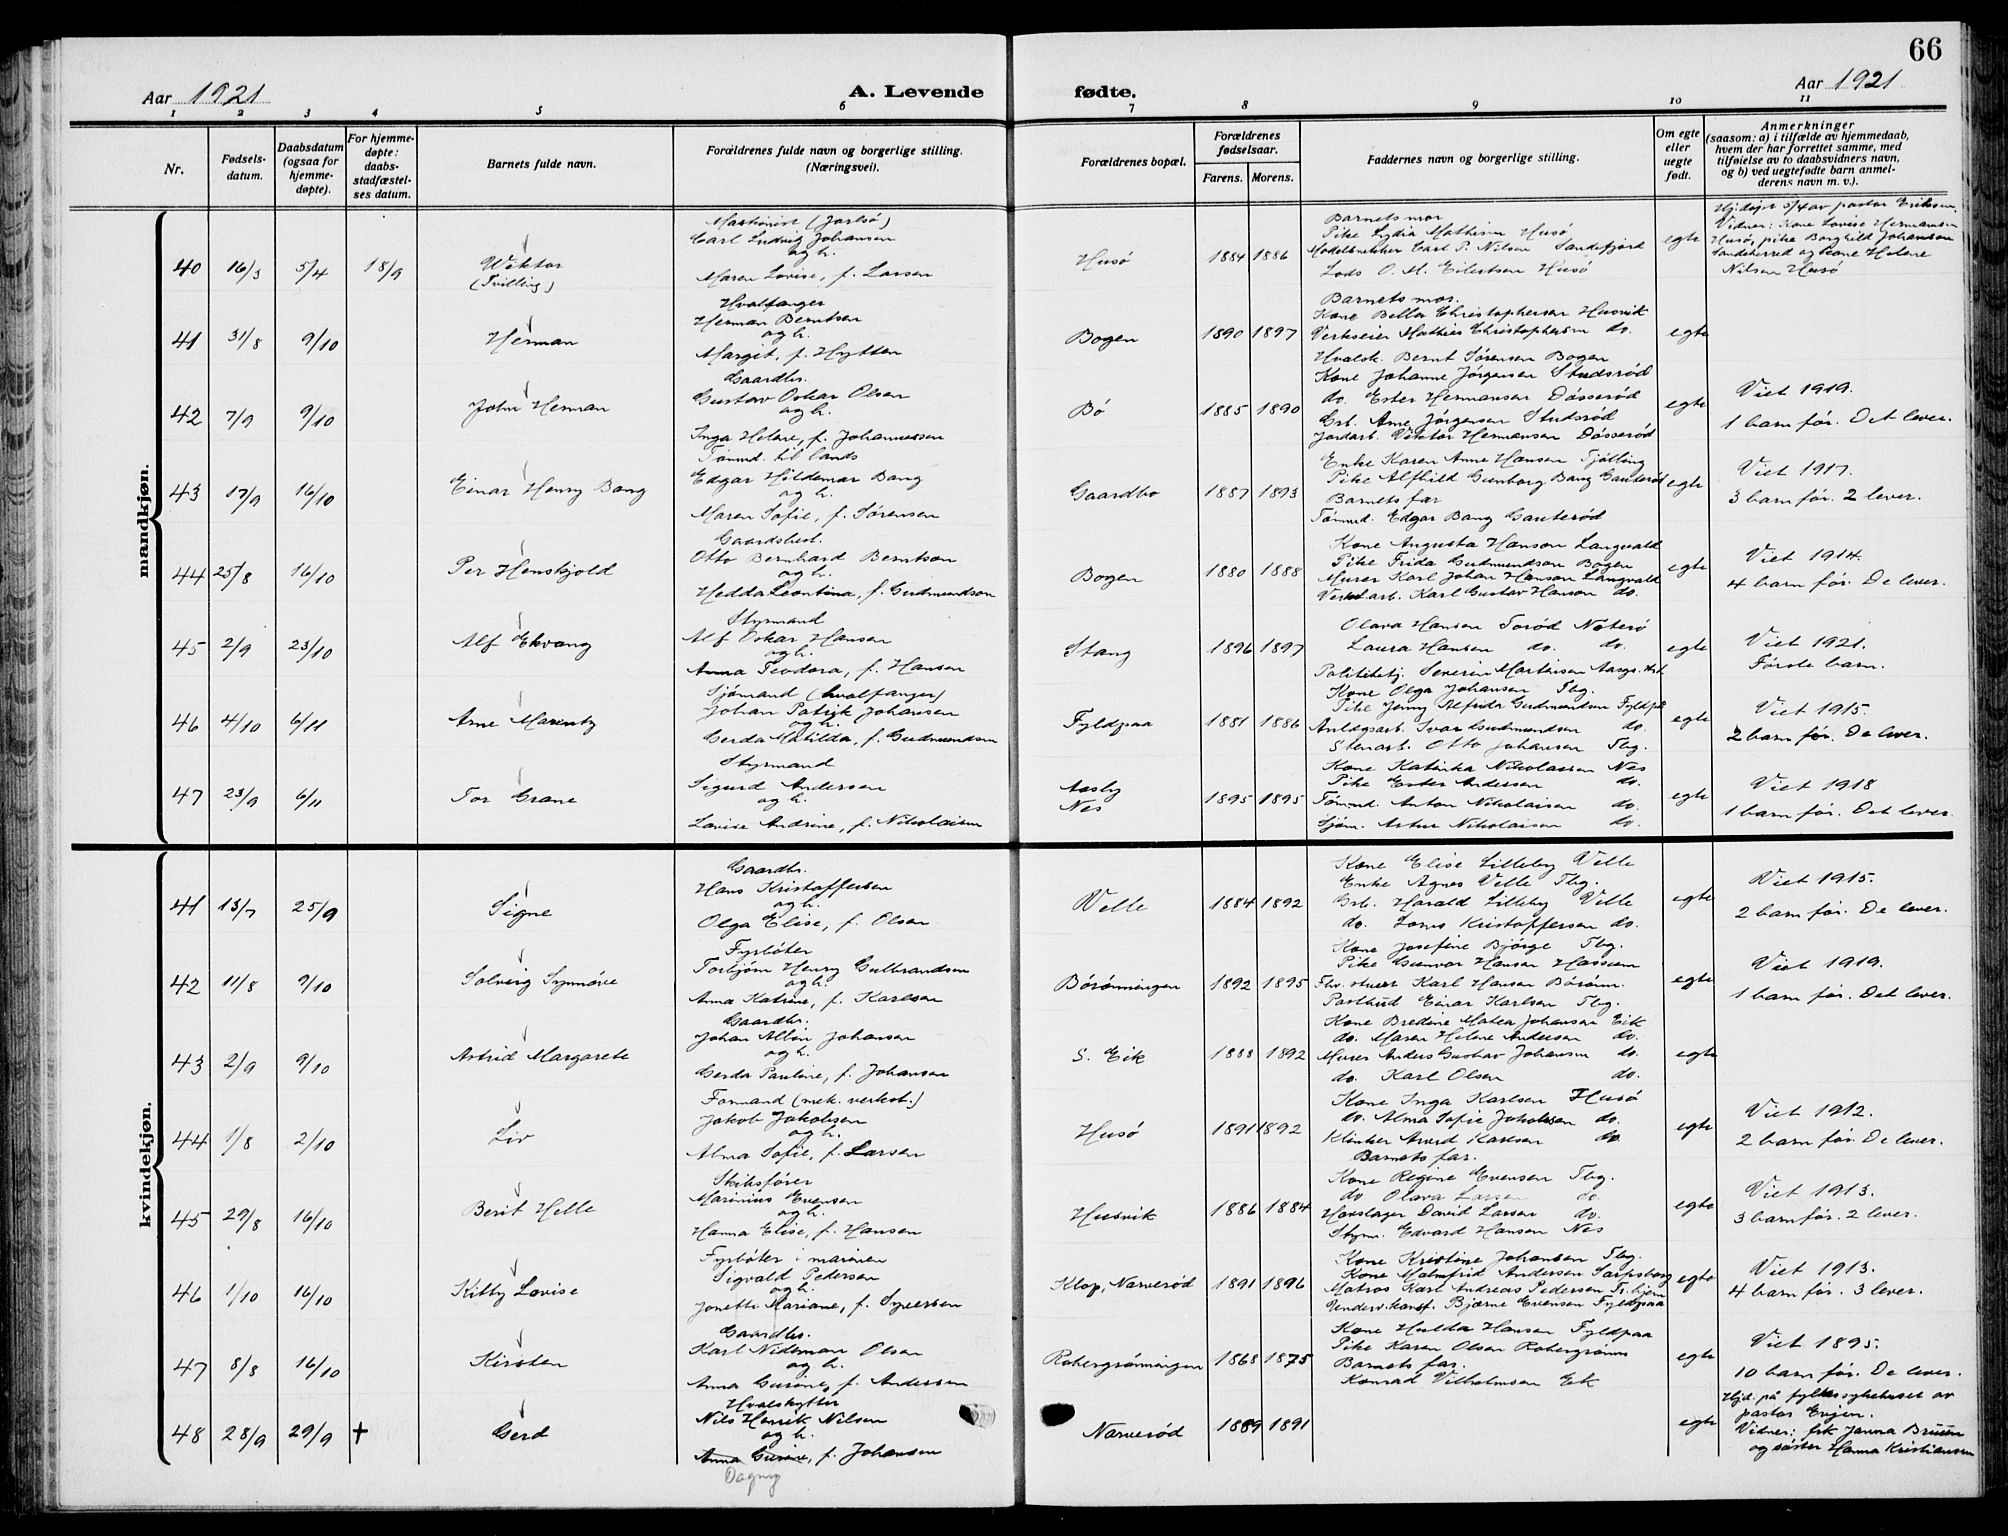 66
Aar 1921 A. Levende fødte. Aar 1921
1 2 3 4 5 6 7 8 9 10 11
Nr.
Fødsels-
datum.
Daabsdatum
(ogsaa for
hjemme-
døpte).
For hjemme-
døpte:
daabs-
stadfæstel-
ses datum.
Barnets fulde navn.
Forældrenes fulde navn og borgerlige stilling.
(Næringsvei).
Forældrenes bopæl.
Forældrenes
fødselsaar.
Farens. Morens.
Faddernes navn og borgerlige stilling.
Om egte
eller
uegte
født.
Anmerkninger
(saasom: a) i tilfælde av hjemmedaab,
hvem der har forrettet samme, med
tilføielse av to daabsvidners navn,
og b) ved uegtefødte barn anmel-
derens navn m. v.).
mandkjøn.
40 16/3 5/4 18/9
Wiktor
(Tvilling)
Maskinist (Jarlsø)
Carl Ludvig Johansen
og h.
Maren Lovise, f. Larsen
Husø
1884 1886
Barnets mor
Pike Lydia Mathisen Husø
Modelsnekker Carl P. Nilsen Sandefjord
Lods O. M. Eilertsen Husø
egte
Hj.døpt 5/4 av pastor Eriksen.
Vidner: Kone Lovise Hermansen
Husø, pike Borghild Johansen
Sandeherred og kone Helene
Nilsen Husø
41 31/8 9/10
Herman
Hvalfanger
Herman Berntsen
og h.
Margit, f. Hytten
Bogen
1890 1897
Barnets mor.
Kone Bella Christophersen Husvik
Verkseier Mathias Christophersen do.
Hvalsk. Bernt Sørensen Bogen
egte
42 7/9 9/10
John Herman
Gaardbr.
Gustav Oskar Olsen
og h.
Inga Helene, f. Johannessen
Bø
1885 1890
Kone Johanne Jørgensen Studsrød
do. Ester Hermansen Døsserød
Grb. Arne Jørgensen Studsrød
Jordarb. Viktor Hermansen Døsserød
egte
Viet 1919.
1 barn før. Det lever.
43 17/9 16/10
Einar Henry Bang
Tømmd. til lands
Edgar Hildemar Bang
og h.
Maren Sofie, f. Sørensen
Gaardbo
1887 1893
Enke Karen Anne Hansen Tjølling
Pike Alfhild Gunborg Bang Gauterød
Barnets far
Tømmd. Edgar Bang Gauterød
egte
Viet 1917.
3 barn før. 2 lever.
44 25/8 16/10
Per Henskjold
Gaardsbest.
Otto Bernhard Berntsen
og h.
Hedda Leontina, f. Gudmundson
Bogen
1880 1888
Kone Augusta Hanson Langvald
Pike Frida Gudmundson Bogen
Murer Karl Johan Hanson Langvald
Verkst.arb. Karl Gustav Hanson do.
egte
Viet 1914.
4 barn før. De lever.
45 2/9 23/10
Alf Ekvang
Styrmand
Alf Oskar Hansen
og h.
Anna Teodora, f. Hansen
Stang
1896 1897
Olava Hansen Torød Nøterø
Laura Hansen do. do.
Politibetj. Severin Martinsen
egte
Viet 1921.
Første barn.
46 4/10 6/11
Arne
Sjømand (hvalfanger)
Johan Patrik Johansen
og h.
Gerda Matilda, f. Gudmundsen
Fyldpaa
1881 1886
Kone Olga Johansen Tbg.
Pike Jenny Alfrida Gudmundsen Fyldp.
Anlægsarb. Ivar Gudmundsen do.
Stenarb. Otto Johansen Tbg.
egte
Viet 1915.
2 barn før. De lever.
47 23/9 6/11
Tor Grane
Styrmand
Sigurd Andersen
og h.
Lovise Andrine, f. Nikolaisen
Aasby
Nes
1895 1895
Kone Katinka Nikolaisen Nes
Pike Ester Andersen do.
Tømmd. Anton Nikolaisen do.
Sjøm. Artur Nikolaisen do.
egte
Viet 1918
1 barn før. Det lever.
kvindekjøn.
41 13/7 25/9
Signe
Gaardbr.
Hans Kristoffersen
og h.
Olga Elise, f. Olsen
Velle
1884 1892
Kone Elise Lilleby Velle
Enke Agnes Velle Tbg.
Grb. Harald Lilleby Velle
do. Lorns Kristoffersen do.
egte
Viet 1915.
2 barn før. De lever.
42 11/8 9/10
Solveig Synnøve
Fyrbøter
Torbjørn Henry Gulbrandsen
og h.
Anna Katrine, f. Karlsen
Børønningen
1892 1895
Kone Josefine Bjørge Tbg.
Pike Gunvor Hansen Hassum
Karl Hansen Børønn.
Postbud Einar Karlsen Tbg.
egte
Viet 1919.
1 barn før. Det lever.
43 2/9 9/10
Astrid Margarete
Gaardbr.
Johan Albin Johansen
og h.
Gerda Pauline, f. Johansen
S. Eik
1888 1892
Kone Bredine Matea Johansen Eik
do. Maren Helene Andersen do.
Murer Anders Gustav Johansen do.
do. Karl Olsen do.
egte
44 1/8 2/10
Liv
Formand (mek. verkst.)
Jakob Jakobsen
og h.
Alma Sofie, f. Larsen
Husø
1891 1892
Kone Inga Karlsen Husø
do. Alma Sofie Jakobsen do.
Klinker Arvid Karlsen do.
Barnets far.
egte
Viet 1912.
2 barn før. De lever.
45 29/8 16/10
Berit Helle
Skibsfører
Marinius Evensen
og h.
Hanna Elise, f. Hansen
Husvik
1886 1884
Kone Regine Evensen Tbg.
do Olava Larsen do.
Havslager David Larsen do.
Styrm. Edvard Hansen Nes
egte
Viet 1913.
3 barn før. 2 lever.
46 1/10 16/10
Kitty Lovise
Fyrbøter i marinen
Sigvald Pedersen
og h.
Jonette Mariane, f. Syversen
Klop, Narverød
1891 1896
Kone Kristine Johansen Tbg.
Kone Malmfrid Andersen Sarpsborg
Matros Karl Andreas Pedersen Tr.hjem
Bjarne Evensen Fyldpaa
egte
Viet 1913.
4 barn før. 3 lever.
47 8/8 16/10
Kirsten
Gaardbr.
Karl Nideman Olsen
og h.
Anna Gurine, f. Andersen
Robergrønningen
1868 1875
Kone Hulda Hansen Fyldpaa
Pike Karen Olsen Robergrønn
Barnets far.
Konrad Vilhelmsen Eik
egte
Viet 1895.
10 barn før. De lever.
48 28/9 29/9 †
Gerd
Hvalskytter
Nils Henrik Nilsen
og h.
Anna Gurine, f. Johansen
Dagny
Narverød
1889 1891
egte
Hjd. på fylkessykehuset av
pastor Evjen.
Vidner: frk Janna Bruun
og søster Hanna Kristiansen